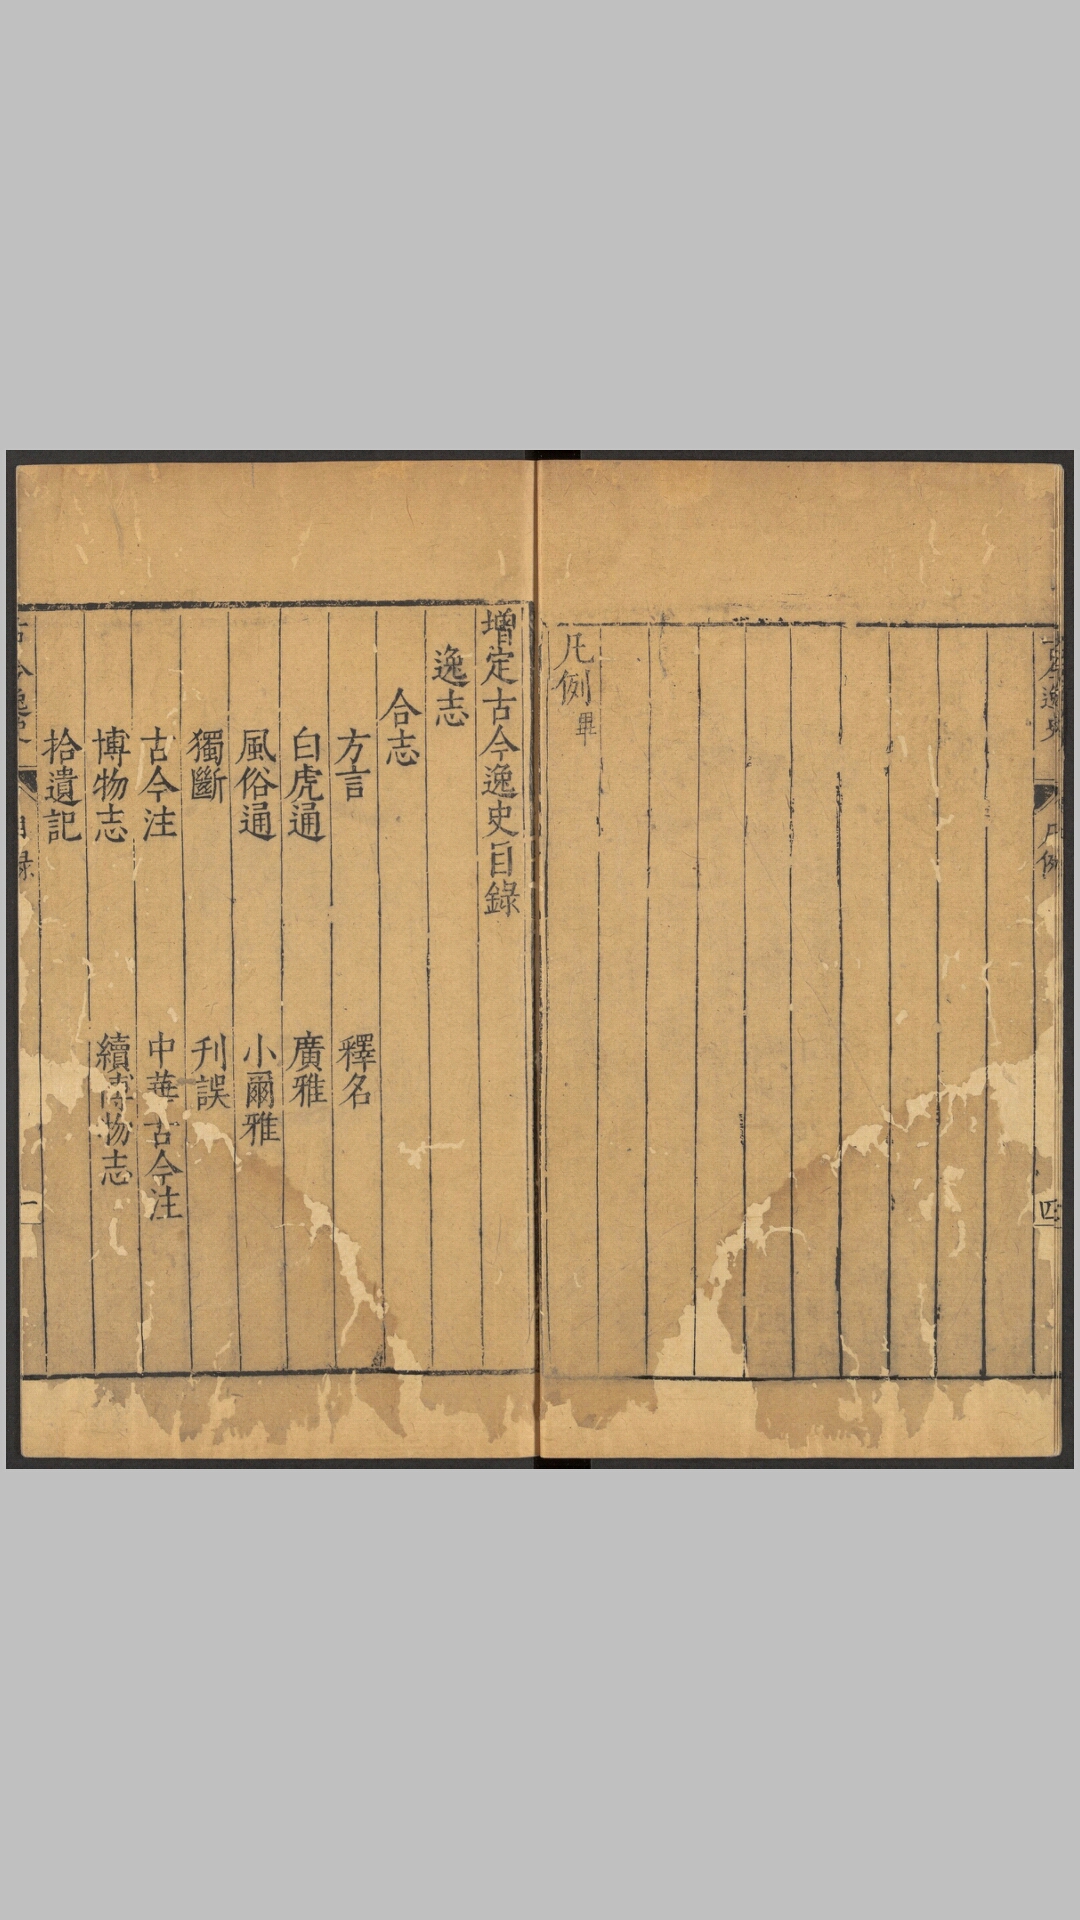 古今逸史
凡例
四
凡例畢
增定古今逸史目錄
逸志
合志
方言 釋名
白虎通 廣雅
風俗通 小爾雅
獨斷 刊誤
古今注 中華古今注
博物志 續博物志
拾遺記
古今逸史
目錄
一